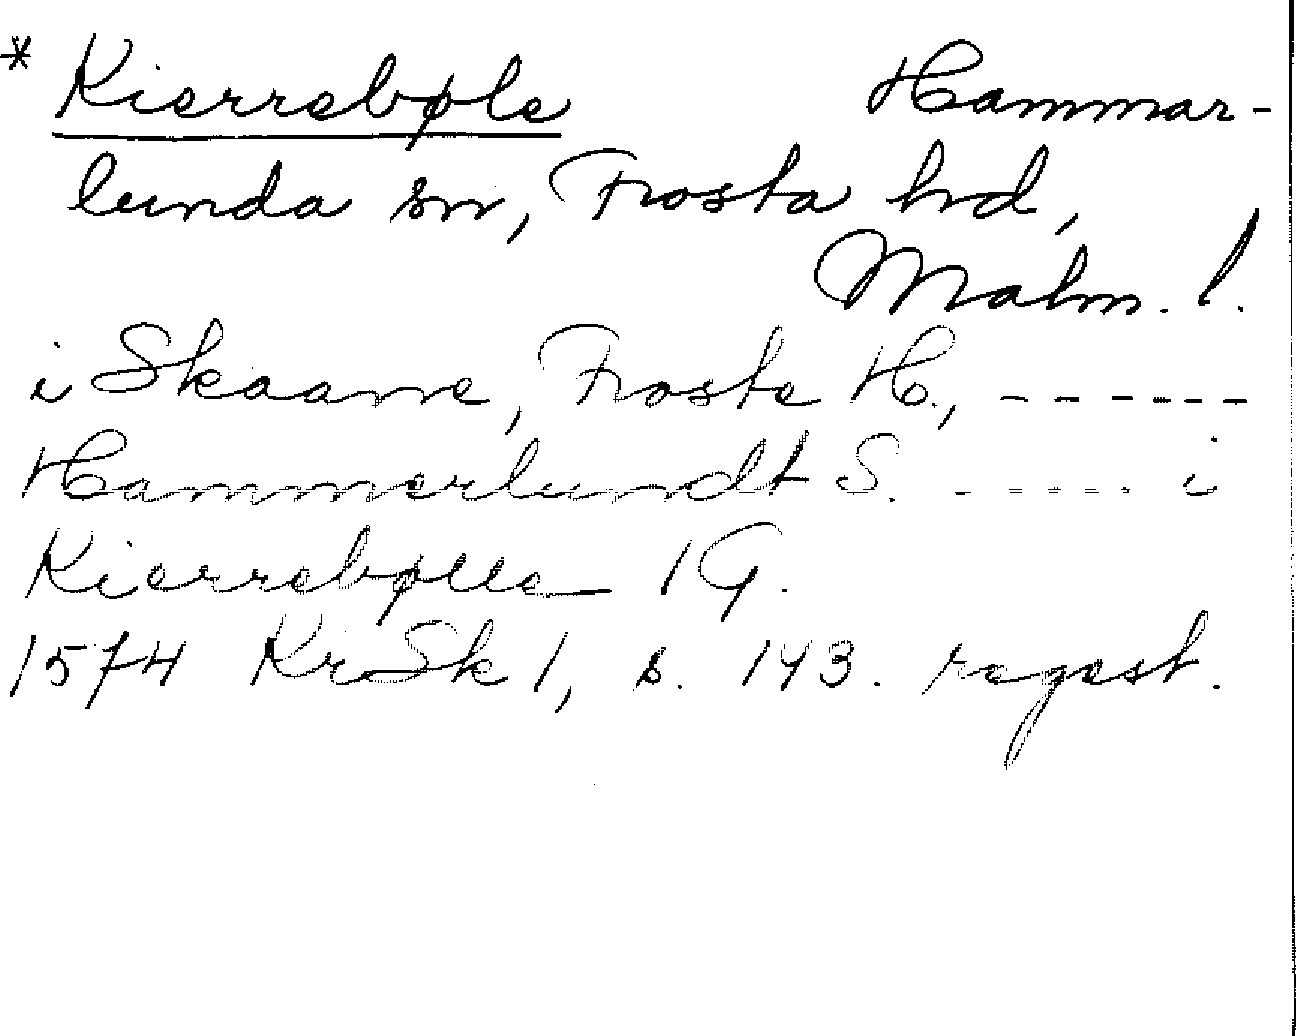 * Kierrebøle Hammar-
lunda sn, Frosta hd,
Malm. l.
i Skaane, Froste H., ------
Hammerlundt S. ----- i
Kierrebølle 1 G.
1574 KrSk 1, s. 143. regest.